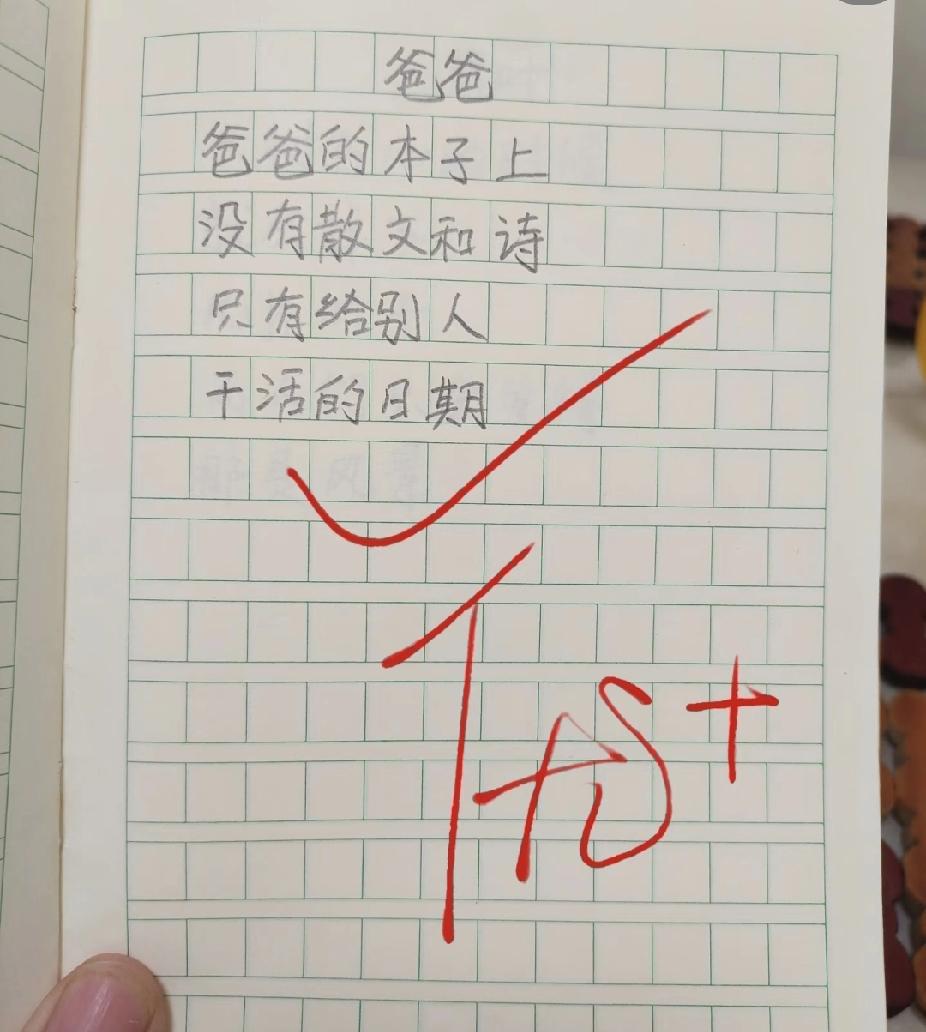 爸爸
爸爸的本子上
没有散文和诗
只有给别人
干活的日期
优+